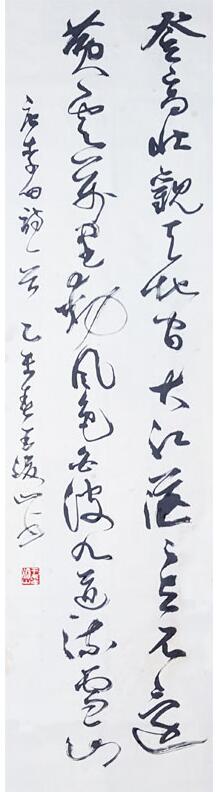 登高壮觀天地间大江茫茫去不還
黄雲萬里動風色白波九道流雪山
唐李白詩一首 乙未春王